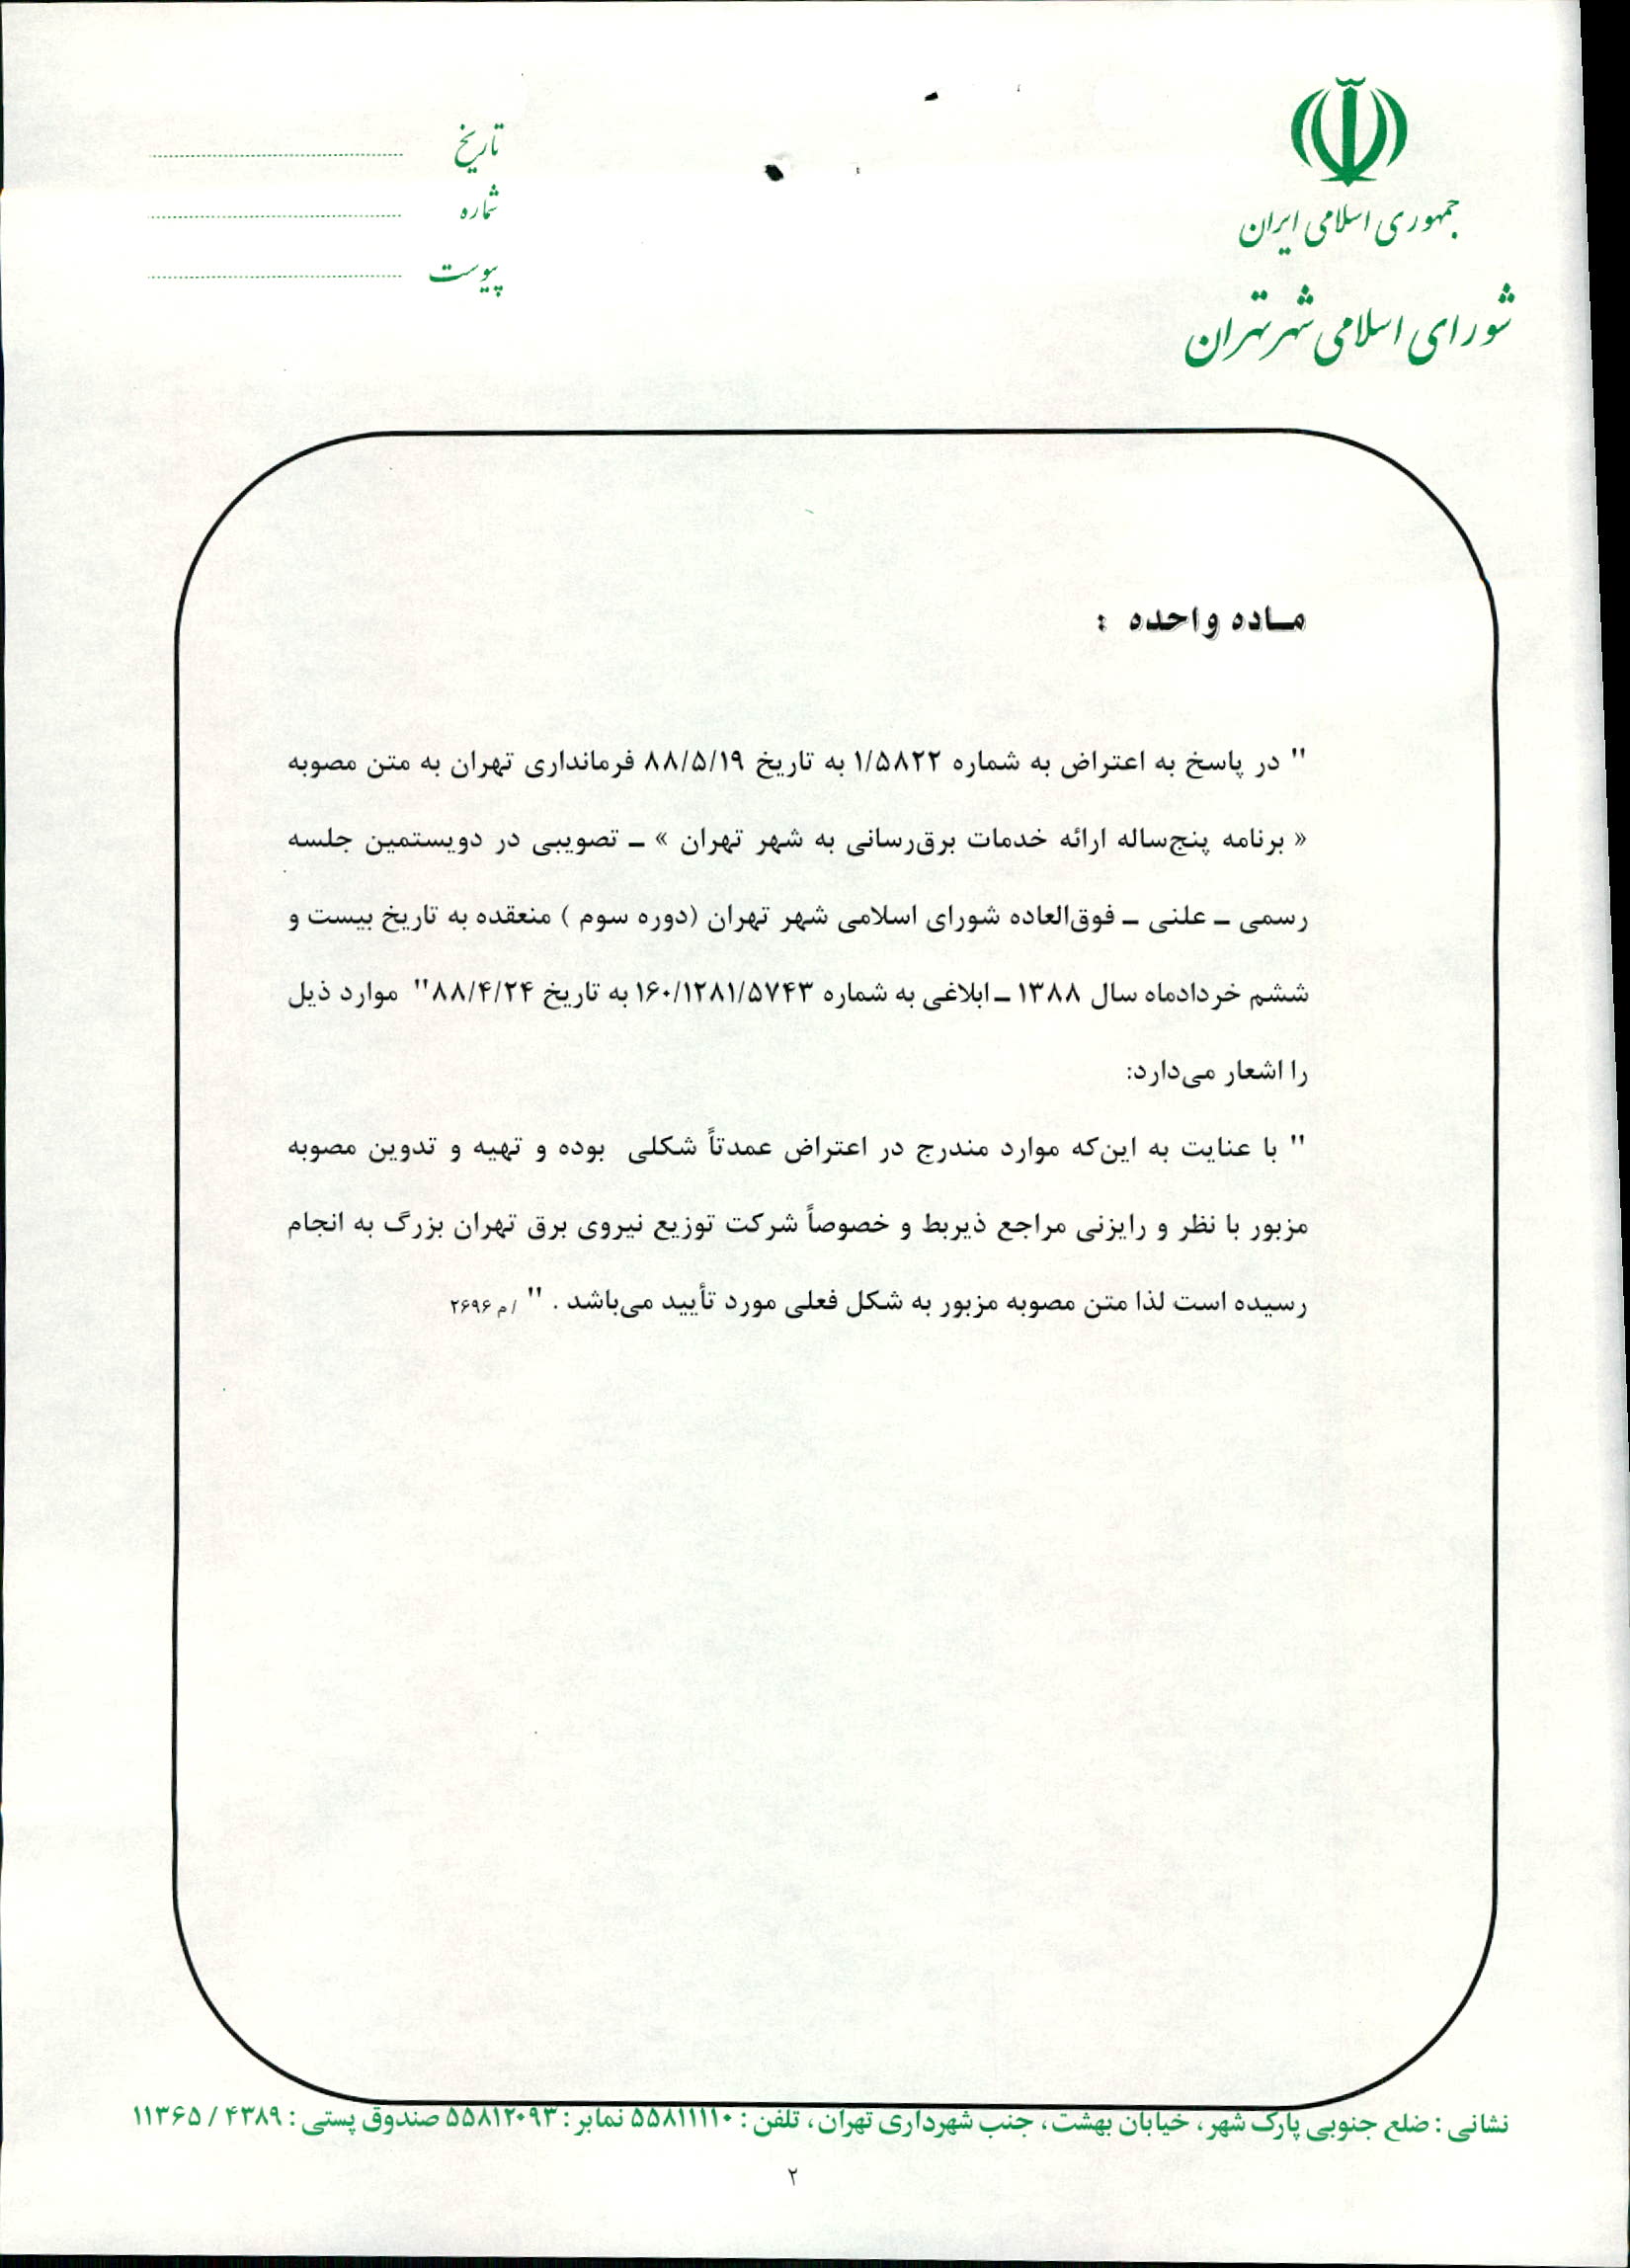 جمهوری اسلامی ایران
شورای اسلامی شهر تهران
تاریخ
شماره
پیوست
مـاده واحده :
" در پاسخ به اعتراض به شماره ۱/۵۸۲۲ به تاریخ ۸۸/۵/۱۹ فرمانداری تهران به متن مصوبه
« برنامه پنج‌ساله ارائه خدمات برق‌رسانی به شهر تهران » ـ تصویبی در دویستمین جلسه
رسمی ـ علنی ـ فوق‌العاده شورای اسلامی شهر تهران (دوره سوم ) منعقده به تاریخ بیست و
ششم خردادماه سال ۱۳۸۸ ـ ابلاغی به شماره ۱۶۰/۱۲۸۱/۵۷۴۳ به تاریخ ۸۸/۴/۲۴" موارد ذیل
را اشعار می‌دارد:
" با عنایت به این‌که موارد مندرج در اعتراض عمدتاً شکلی بوده و تهیه و تدوین مصوبه
مزبور با نظر و رایزنی مراجع ذیربط و خصوصاً شرکت توزیع نیروی برق تهران بزرگ به انجام
رسیده است لذا متن مصوبه مزبور به شکل فعلی مورد تأیید می‌باشد . " /م ۲۶۹۶
نشانی : ضلع جنوبی پارک شهر ، خیابان بهشت ، جنب شهرداری تهران ، تلفن : ۵۵۸۱۱۱۱۰ نمابر : ۵۵۸۱۲۰۹۳ صندوق پستی : ۴۳۸۹ / ۱۱۳۶۵
۲